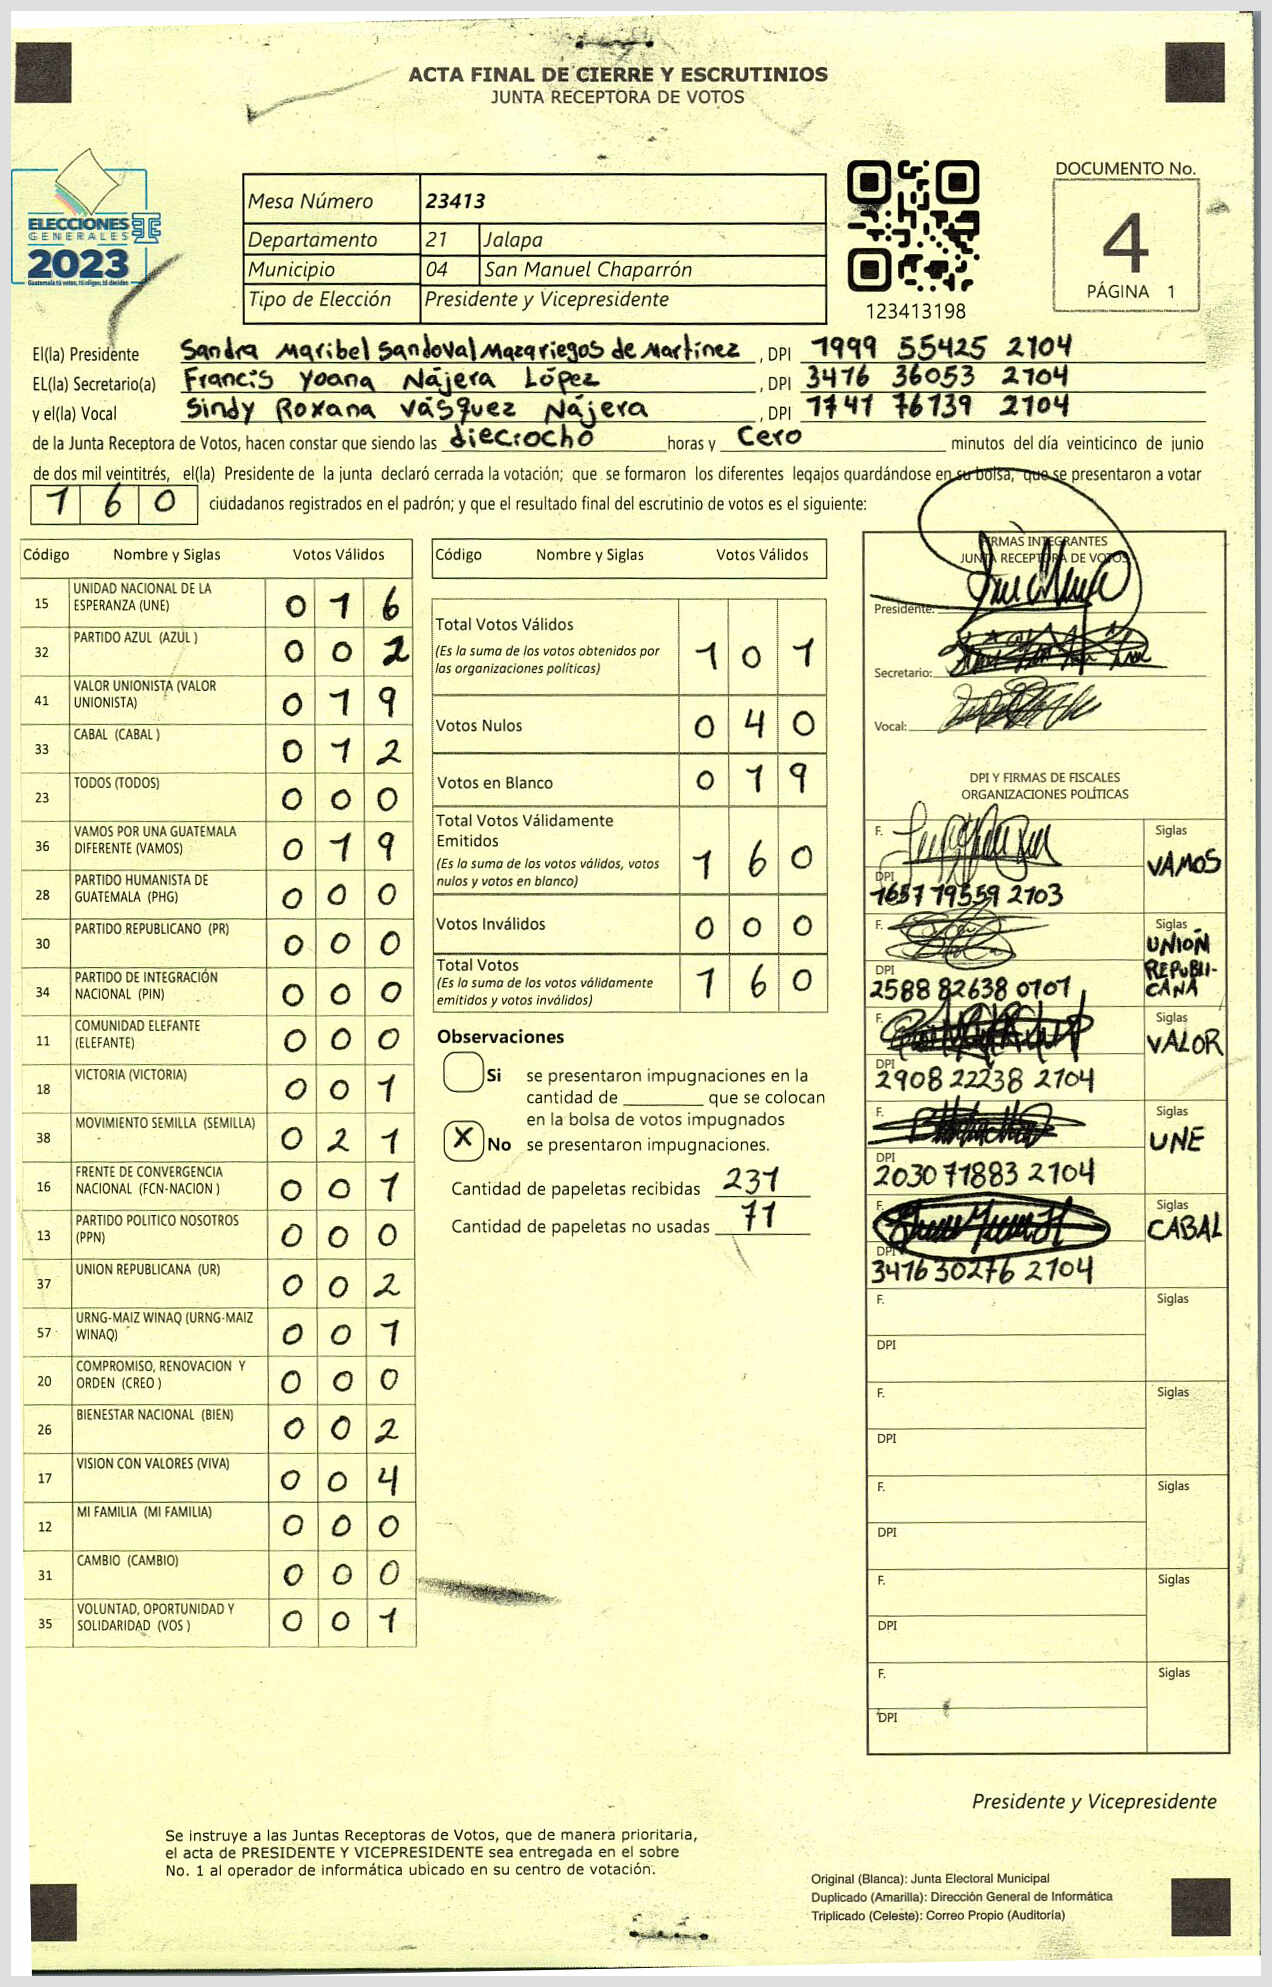 ACTA FINAL DE CIERRE Y ESCRUTINIOS
JUNTA RECEPTORA DE VOTOS
ELECCIONES
GENERALES
2023
Guatemala tú votas, tú eliges, tú decides
Mesa Número 23413
Departamento 21 Jalapa
Municipio 04 San Manuel Chaparrón
Tipo de Elección Presidente y Vicepresidente
123413198
DOCUMENTO No.
4
PÁGINA 1
El(la) Presidente Sandra Maribel Sandoval Mazariegos de Martinez , DPI 1999 55425 2104
EL(la) Secretario(a) Francis Yoana Nájera López , DPI 3476 36053 2104
y el(la) Vocal Sindy Roxana Vásquez Nájera , DPI 1741 76139 2104
de la Junta Receptora de Votos, hacen constar que siendo las dieciocho horas y Cero minutos del día veinticinco de junio
de dos mil veintitrés, el(la) Presidente de la junta declaró cerrada la votación; que se formaron los diferentes legajos guardándose en su bolsa, que se presentaron a votar
160 ciudadanos registrados en el padrón; y que el resultado final del escrutinio de votos es el siguiente:
Código Nombre y Siglas Votos Válidos
15 UNIDAD NACIONAL DE LA ESPERANZA (UNE) 0 1 6
32 PARTIDO AZUL (AZUL ) 0 0 2
41 VALOR UNIONISTA (VALOR UNIONISTA) 0 1 9
33 CABAL (CABAL ) 0 1 2
23 TODOS (TODOS) 0 0 0
36 VAMOS POR UNA GUATEMALA DIFERENTE (VAMOS) 0 1 9
28 PARTIDO HUMANISTA DE GUATEMALA (PHG) 0 0 0
30 PARTIDO REPUBLICANO (PR) 0 0 0
34 PARTIDO DE INTEGRACIÓN NACIONAL (PIN) 0 0 0
11 COMUNIDAD ELEFANTE (ELEFANTE) 0 0 0
18 VICTORIA (VICTORIA) 0 0 1
38 MOVIMIENTO SEMILLA (SEMILLA) 0 2 1
16 FRENTE DE CONVERGENCIA NACIONAL (FCN-NACION ) 0 0 1
13 PARTIDO POLITICO NOSOTROS (PPN) 0 0 0
37 UNION REPUBLICANA (UR) 0 0 2
57 URNG-MAIZ WINAQ (URNG-MAIZ WINAQ) 0 0 1
20 COMPROMISO, RENOVACION Y ORDEN (CREO ) 0 0 0
26 BIENESTAR NACIONAL (BIEN) 0 0 2
17 VISION CON VALORES (VIVA) 0 0 4
12 MI FAMILIA (MI FAMILIA) 0 0 0
31 CAMBIO (CAMBIO) 0 0 0
35 VOLUNTAD, OPORTUNIDAD Y SOLIDARIDAD (VOS ) 0 0 1
Código Nombre y Siglas Votos Válidos
Total Votos Válidos 1 0 1
(Es la suma de los votos obtenidos por
las organizaciones políticas)
Votos Nulos 0 4 0
Votos en Blanco 0 1 9
Total Votos Válidamente
Emitidos 1 6 0
(Es la suma de los votos válidos, votos
nulos y votos en blanco)
Votos Inválidos 0 0 0
Total Votos 1 6 0
(Es la suma de los votos válidamente
emitidos y votos inválidos)
Observaciones
Si se presentaron impugnaciones en la
cantidad de ________ que se colocan
en la bolsa de votos impugnados
X No se presentaron impugnaciones.
Cantidad de papeletas recibidas 231
Cantidad de papeletas no usadas 71
FIRMAS INTEGRANTES
JUNTA RECEPTORA DE VOTOS
Presidente:
Secretario:
Vocal:
DPI Y FIRMAS DE FISCALES
ORGANIZACIONES POLÍTICAS
F. Siglas VAMOS
DPI 1657 19559 2103
F. Siglas UNION REPUBLI-CANA
DPI 2588 82638 0101
F. Siglas VALOR
DPI 2908 22238 2104
F. Siglas UNE
DPI 2030 71883 2104
F. Siglas CABAL
DPI 3416 30276 2104
F. Siglas
DPI
F. Siglas
DPI
F. Siglas
DPI
F. Siglas
DPI
F. Siglas
DPI
Presidente y Vicepresidente
Se instruye a las Juntas Receptoras de Votos, que de manera prioritaria,
el acta de PRESIDENTE Y VICEPRESIDENTE sea entregada en el sobre
No. 1 al operador de informática ubicado en su centro de votación.
Original (Blanca): Junta Electoral Municipal
Duplicado (Amarilla): Dirección General de Informática
Triplicado (Celeste): Correo Propio (Auditoría)